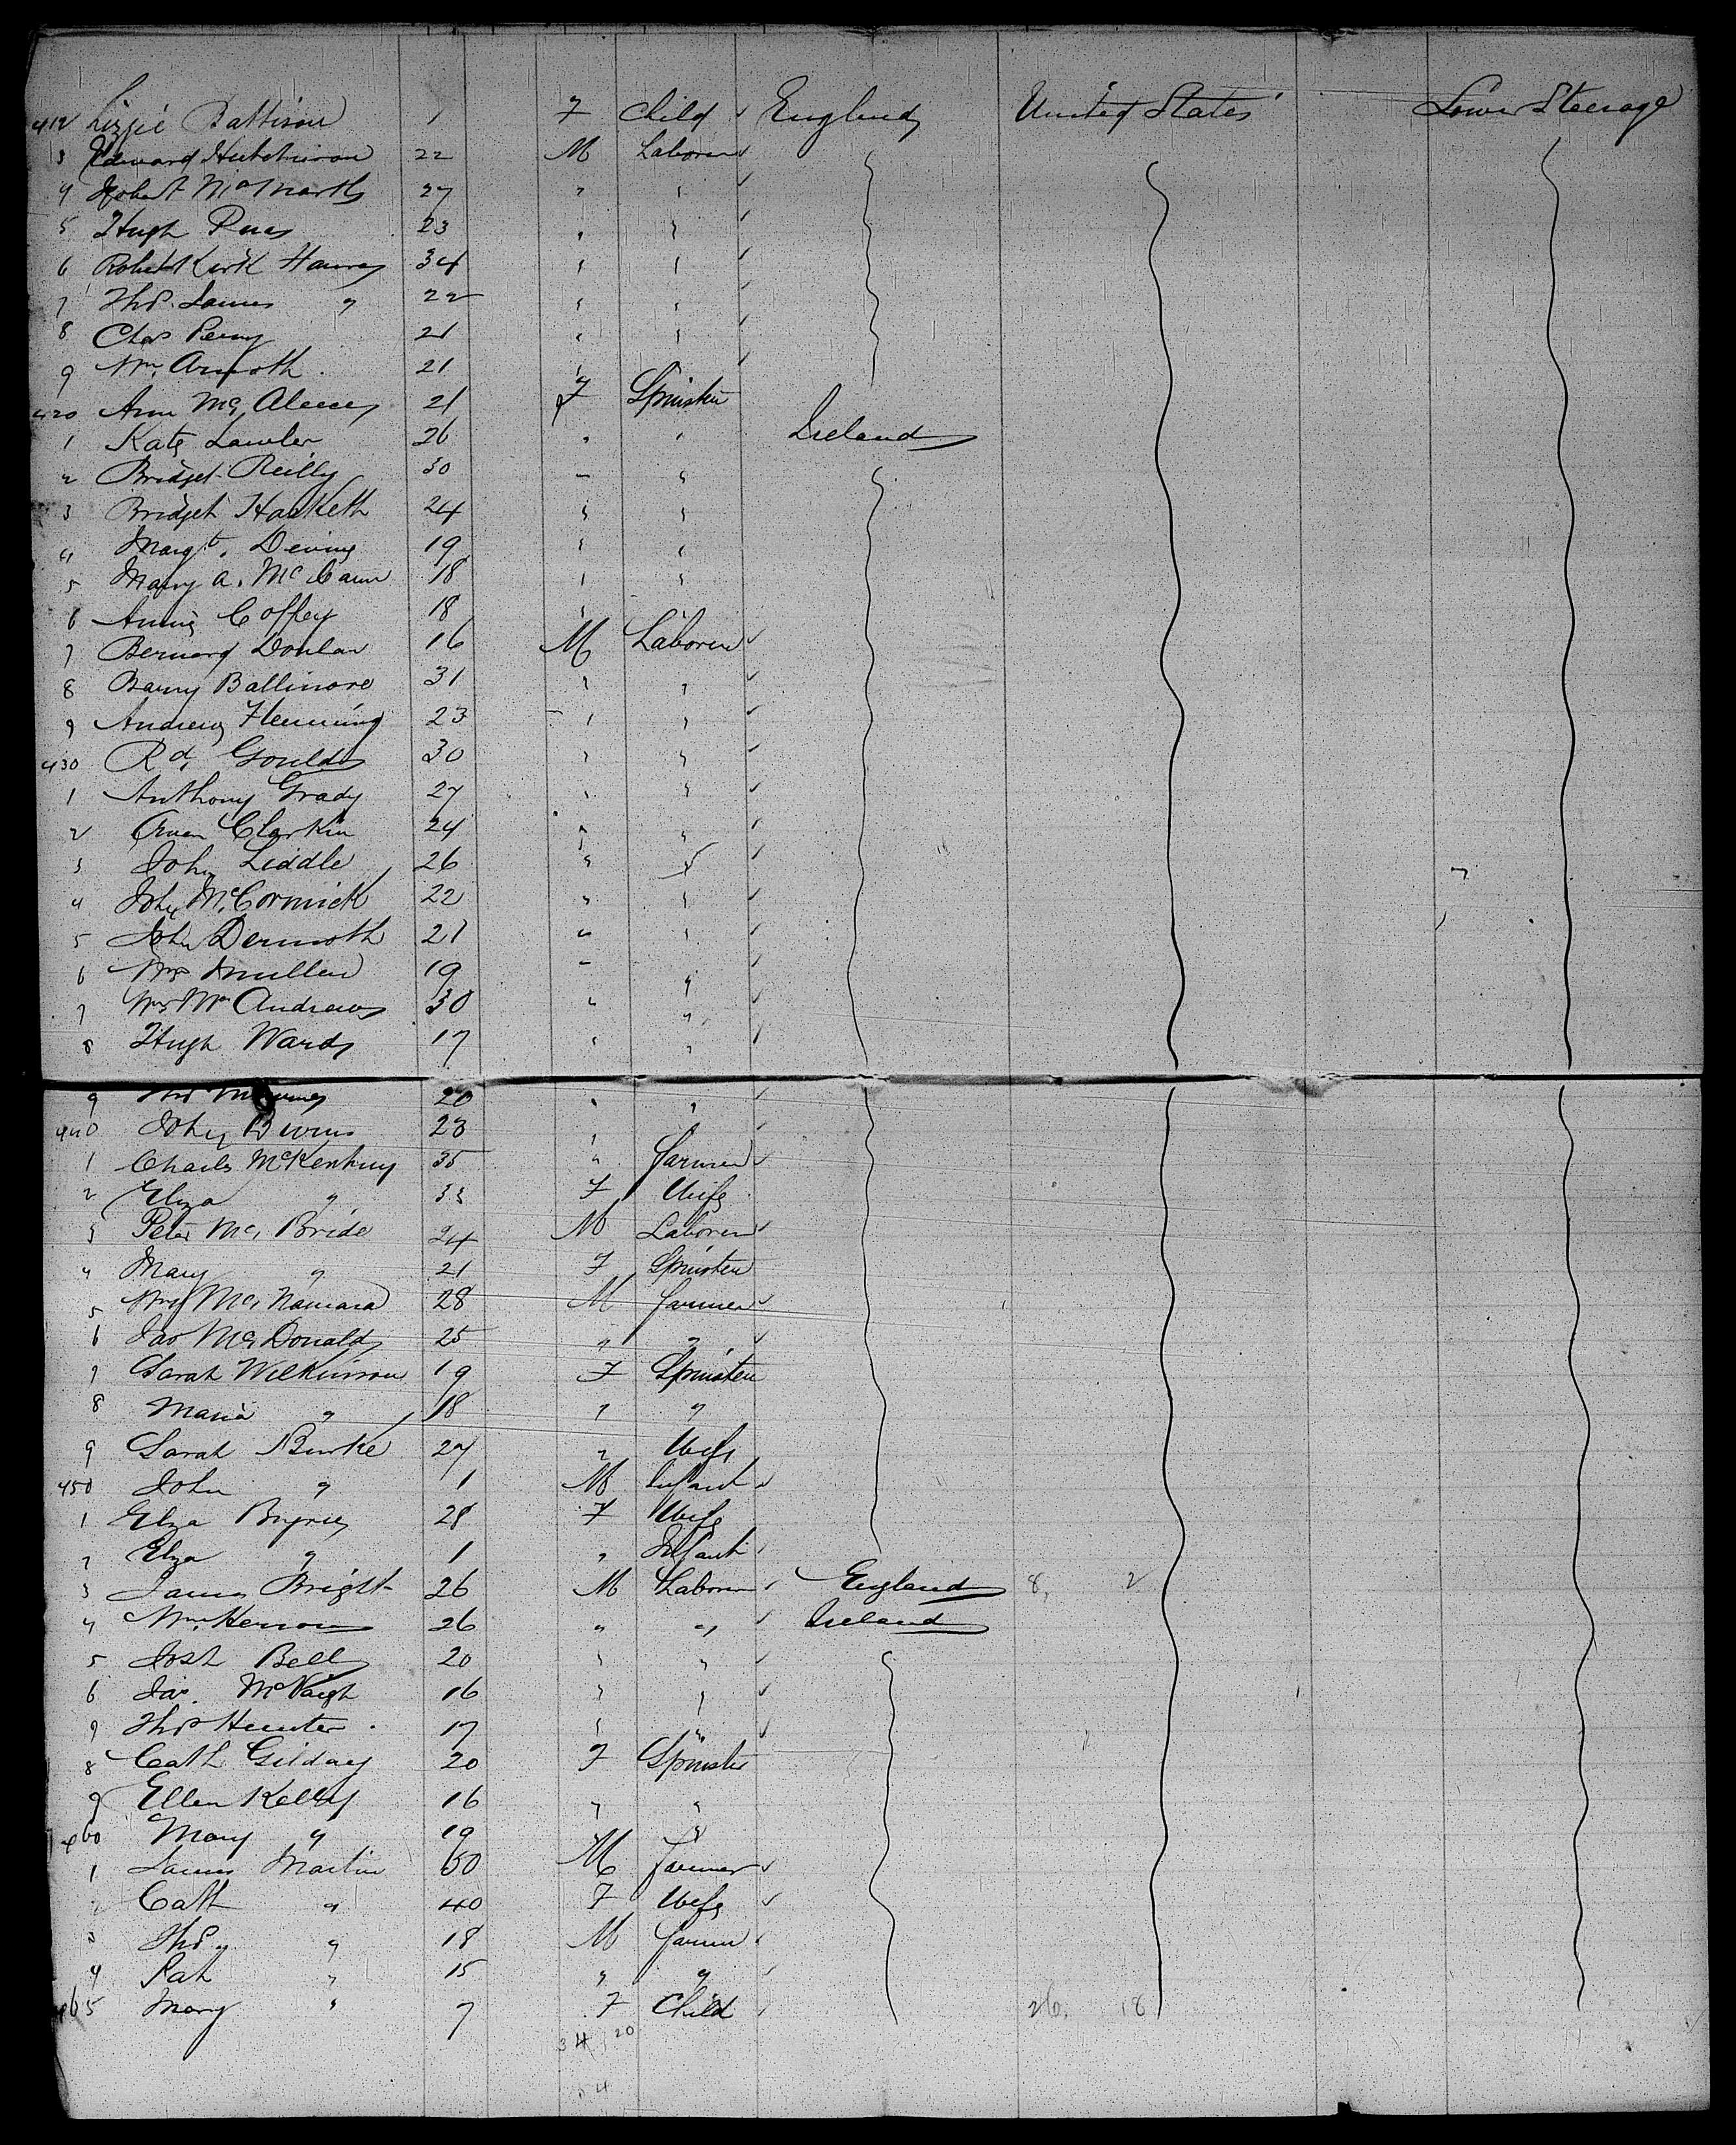 412 Lizzie Battison 1 F Child England United States Lower Steerage
3 Edward Hutchinson 22 M Laborer
4 Robert 27 " "
5 Hugh 23 " "
6 Robert Kirk 34 " "
7 Thos. James " 22 " "
8 Chas Perry 21 " "
9 Wm. 21 "
420 Ann Mc 21 F Spinster
1 Kate Lawler 26 " " Ireland
2 Bridget Reilly 30 " "
3 Bridget Hasketh 24 " "
4 Margt. Devine 19 " "
5 Mary A. McCann 18 " "
6 Annie Coffey 18 " "
7 Bernard Donlan 16 M Laborer
8 Barny Ballinore 31 " "
9 Andrew Flemming 23 " "
430 Rd. Gould 30 " "
1 Anthony Grady 27 " "
2 Owen Clarkin 24 " "
3 John Liddle 26 " "
4 John McCormick 22 " "
5 John Dermoth 21 " "
6 mullen 19 " "
7 Wm Mc Andrews 30 " "
8 Hugh Ward 17 " "
9 Thos 20 " "
440 John 23 "
1 Charles 35 " farmer
2 Eliza " 33 F Wife
3 Peter Mc Bride 24 M Laborer
4 Mary " 21 F Spinster
5 Wm Mc Namara 28 M farmer
6 Jas McDonald 25 " "
7 Sarah Wilkinson 19 F Spinster
8 Maria " 18 " "
9 Sarah Burke 27 " Wife
450 John " 1 M Infant
1 Eliza Bryne 28 F Wife
2 Eliza " 1 " Infant
3 James Bright 26 M Laborer England 8, 2
4 Wm. 26 " " Ireland
5 Josh Bell 20 " "
6 Jas. McVaigh 16 " "
7 Thos Hunter 17 " "
8 Cath Gilday 20 F Spinster
9 Ellen Kelly 16 " "
460 Mary " 19 " "
1 James Martin 50 M farmer
2 Cath " 40 F Wife
3 Thos " 18 M farmer
4 Pat " 15 " "
465 Mary " 7 F Child 26, 18
34 20
54